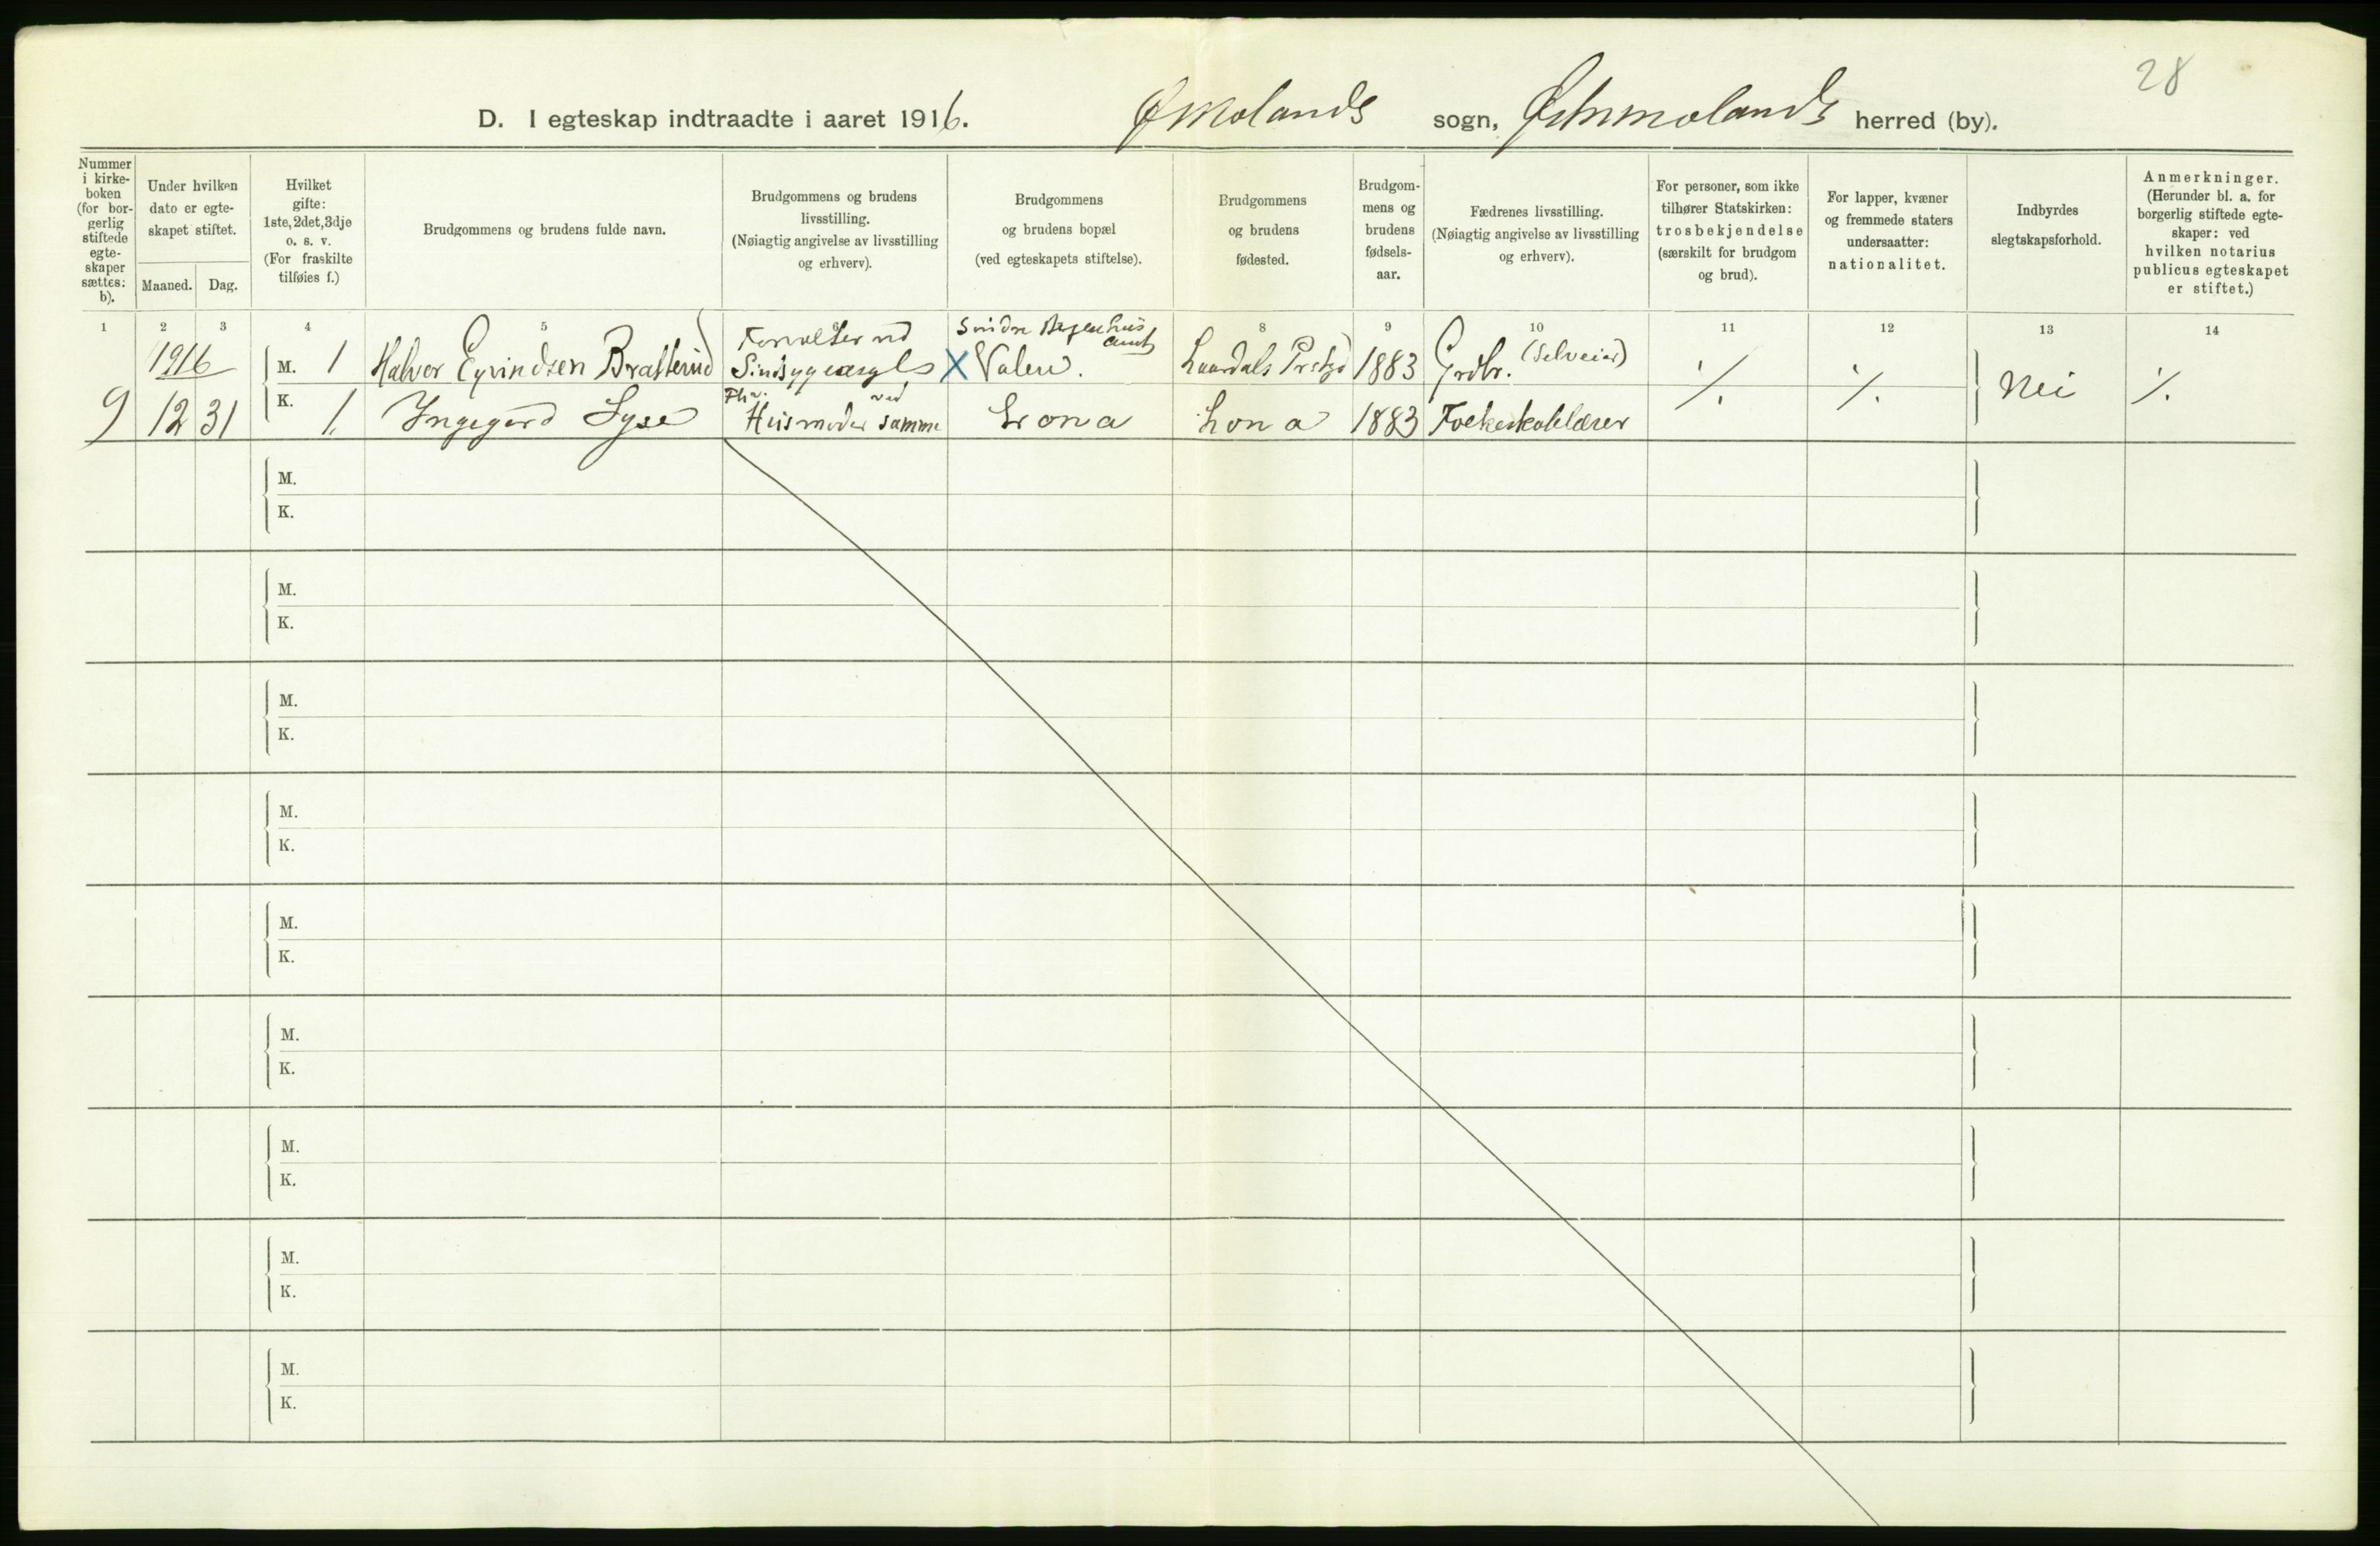 28
D. I egteskap indtraadte i aaret 1916. Ømolands sogn, Østmolands herred (by).
Nummer i kirkeboken (for borgerlig stiftede egteskaper sættes: b).
Under hvilken dato er egteskapet stiftet.
Maaned. Dag.
Hvilket gifte: 1ste, 2det, 3dje o. s. v. (For fraskilte tilføies f.)
Brudgommens og brudens fulde navn.
Brudgommens og brudens livsstilling. (Nøiagtig angivelse av livsstilling og erhverv).
Brudgommens og brudens bopæl (ved egteskapets stiftelse).
Brudgommens og brudens fødested.
Brudgommens og brudens fødselsaar.
Fædrenes livsstilling. (Nøiagtig angivelse av livsstilling og erhverv).
For personer, som ikke tilhører Statskirken: trosbekjendelse (særskilt for brudgom og brud).
For lapper, kvæner og fremmede staters undersaatter: nationalitet.
Indbyrdes slegtskapsforhold.
Anmerkninger. (Herunder bl. a. for borgerlig stiftede egteskaper: ved hvilken notarius publicus egteskapet er stiftet.)
1 2 3 4 5 6 8 9 10 11 12 13 14
1916 M. 1 Halvor Eyvindsen Bratterud Forvalter ved Sindsygeasyls X Søndre Bergenhus amt Valen. Laardals Prstgd 1883 Grdbr. (Selveier) ./. ./. Nei ./.
9 12 31 K. 1. Ingegerd Lyse Fhv. Husmoder ved samme Lona 1883 Folkeskolelærer
M.
K.
M.
K.
M.
K.
M.
K.
M.
K.
M.
K.
M.
K.
M.
K.
M.
K.